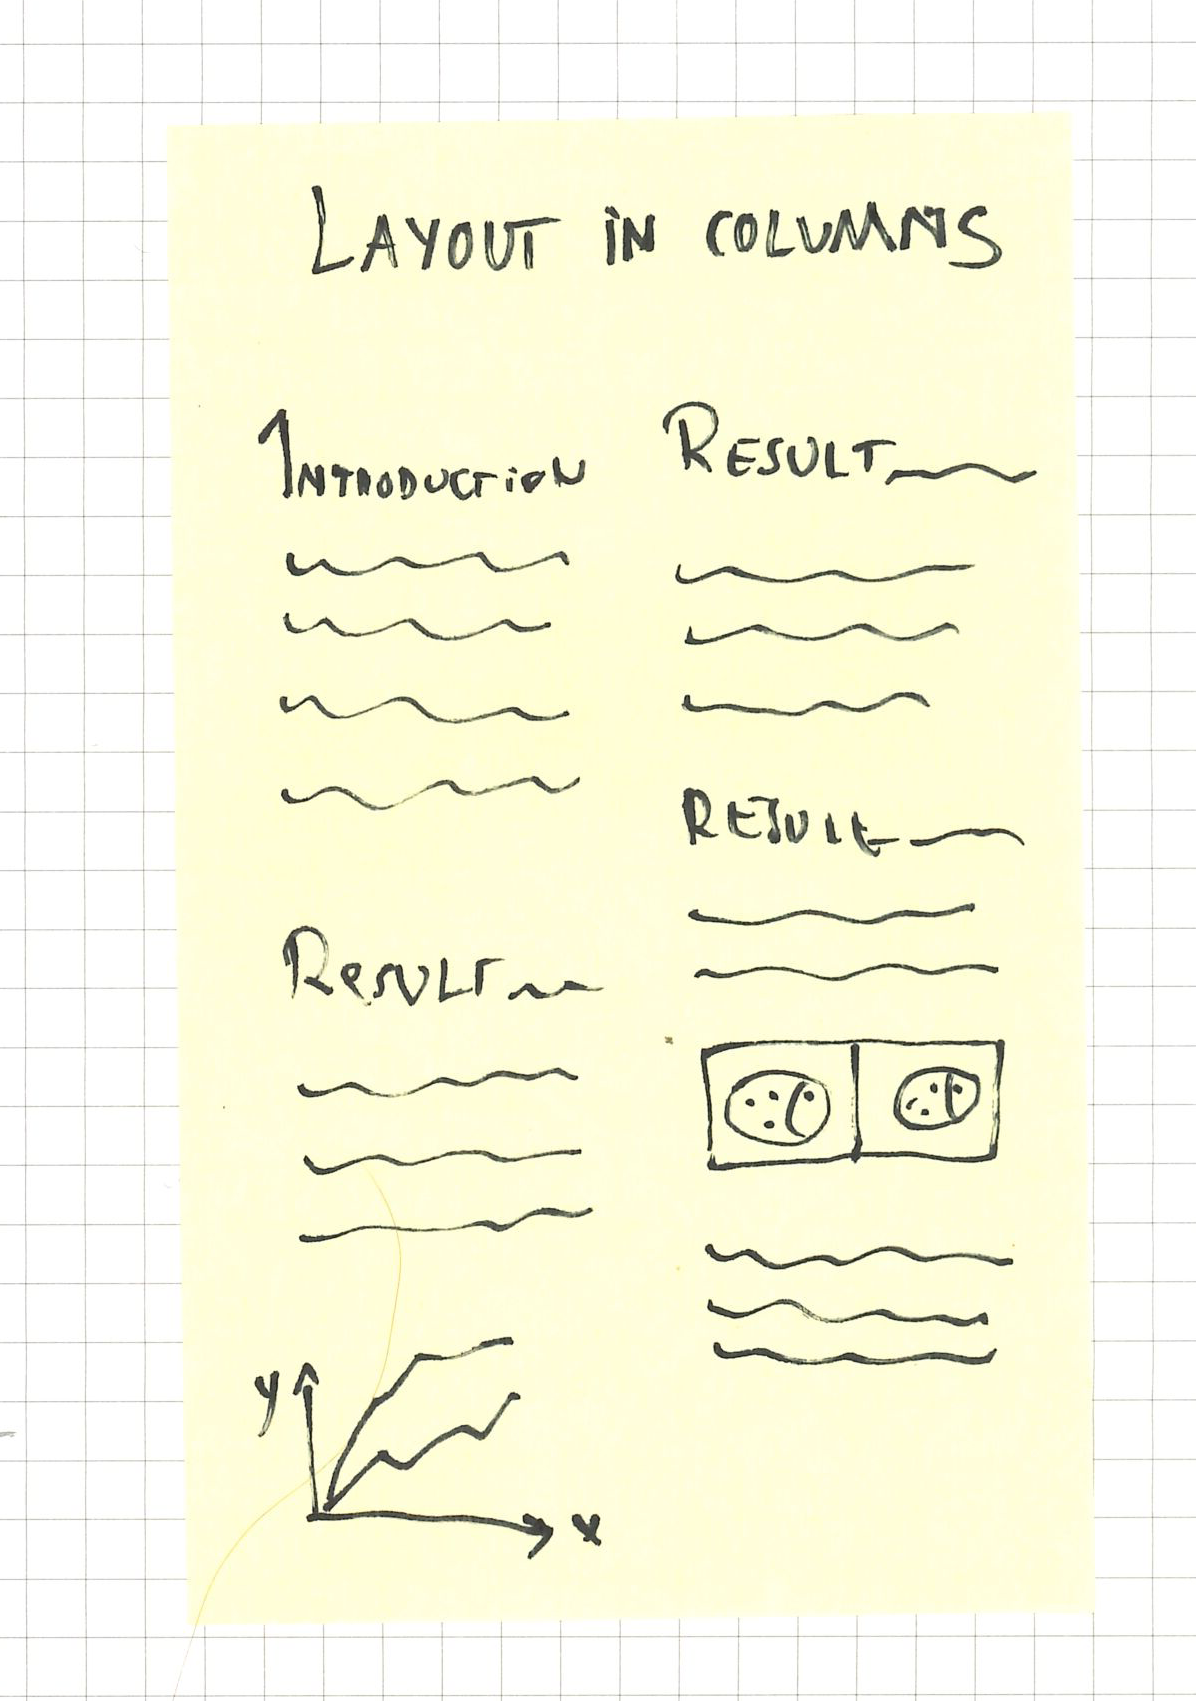 LAYOUT IN COLUMNS
INTRODUCTION
RESULT
y
x
RESULT
RESULT